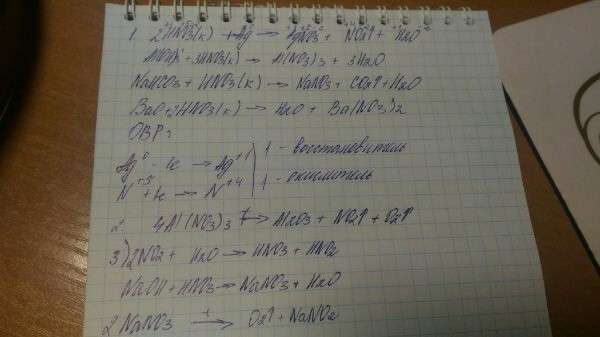 1. 2HNO3(к) + Ag → AgNO3 + NO2↑ + H2O
Al(OH)3 + 3HNO3(к) → Al(NO3)3 + 3H2O
NaHCO3 + HNO3(к) → NaNO3 + CO2↑ + H2O
BaO + 2HNO3(к) → H2O + Ba(NO3)2
ОВР:
Ag⁰ - 1e → Ag⁺¹ | 1 - восстановитель
N⁺⁵ + 1e → N⁺⁴ | 1 - окислитель
2. 4Al(NO3)3 t→ Al2O3 + NO2↑ + O2↑
3) 2NO2 + H2O → HNO3 + HNO2
NaOH + HNO3 → NaNO3 + H2O
2NaNO3 t→ O2↑ + NaNO2